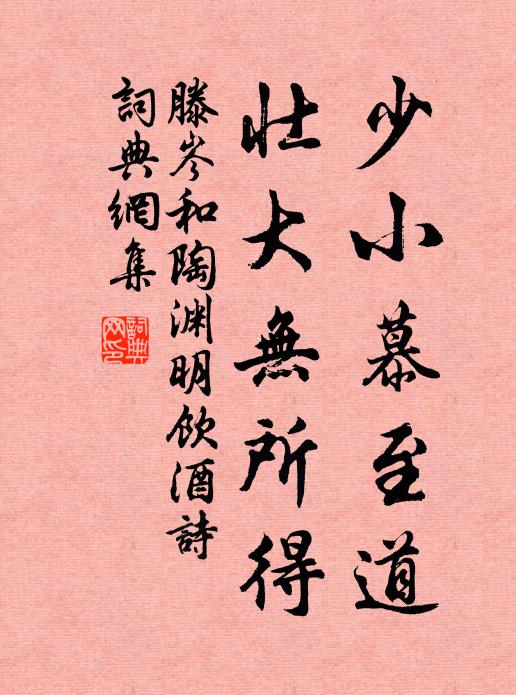 少小慕至道
壯大無所得
滕岑和陶淵明飲酒詩
詞典網集
詞典網印